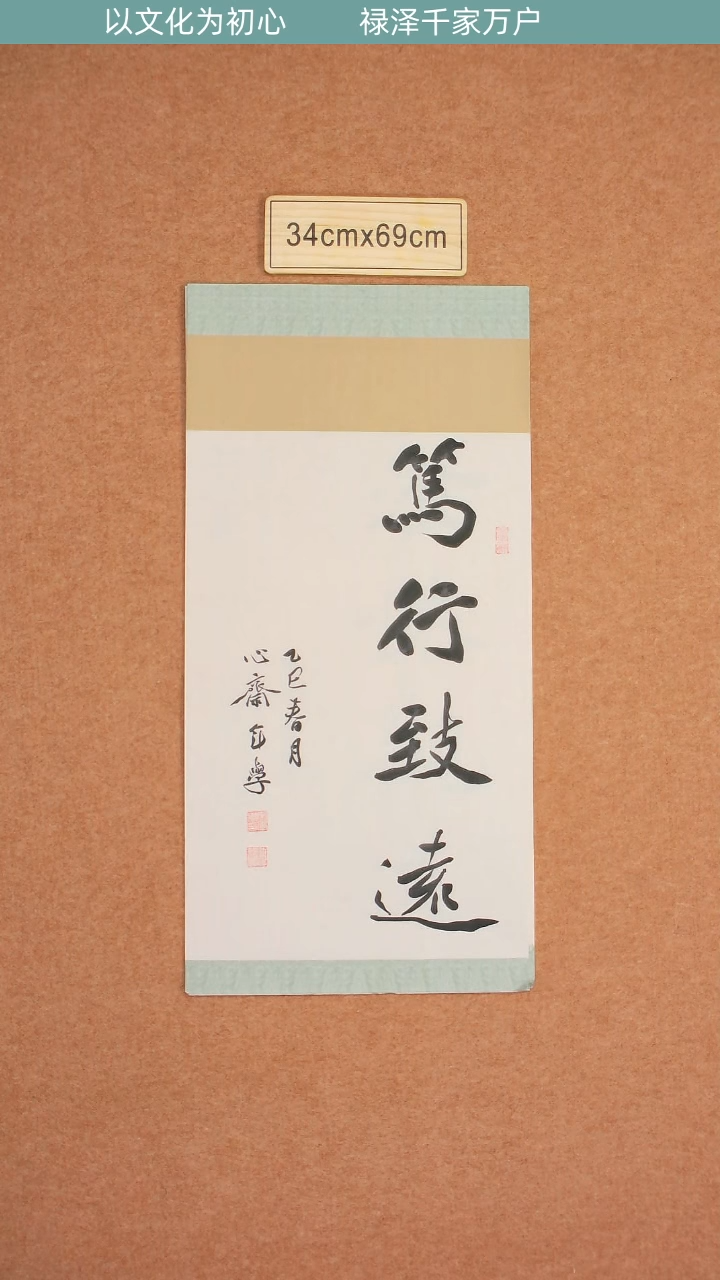 以文化为初心 禄泽千家万户
34cmx69cm
篤行致遠
乙巳春月
心齋自學